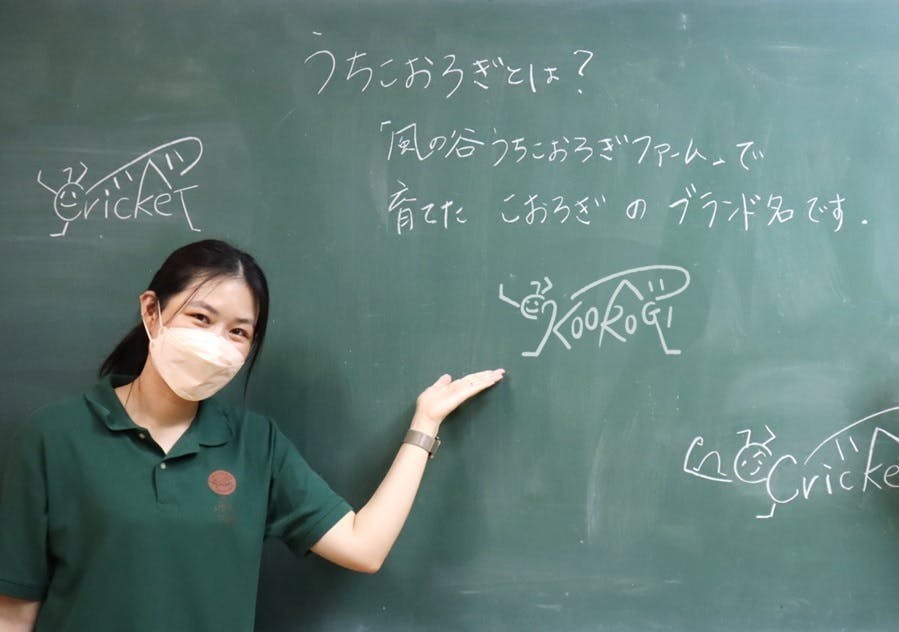 うちこおろぎとは?
「風の谷うちこおろぎファーム」で
育てた こおろぎ の ブランド名です.
CrickeT
KOOROGI
Cricke